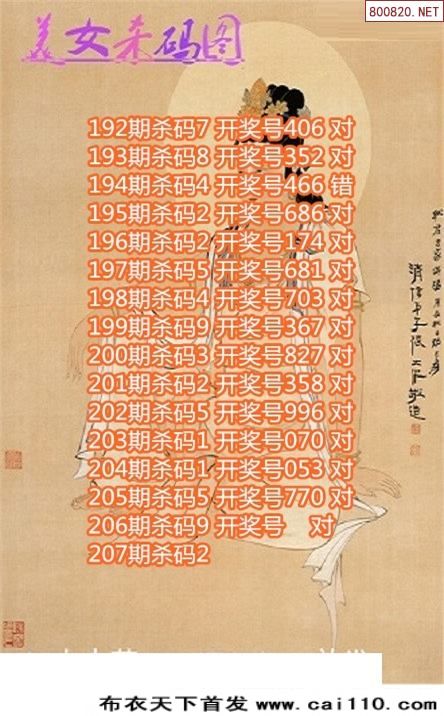 800820.NET
美女杀码图
192期杀码7 开奖号406 对
193期杀码8 开奖号352 对
194期杀码4 开奖号466 错
195期杀码2 开奖号686 对
196期杀码2 开奖号174 对
197期杀码5 开奖号681 对
198期杀码4 开奖号703 对
199期杀码9 开奖号367 对
200期杀码3 开奖号827 对
201期杀码2 开奖号358 对
202期杀码5 开奖号996 对
203期杀码1 开奖号070 对
204期杀码1 开奖号053 对
205期杀码5 开奖号770 对
206期杀码9 开奖号 对
207期杀码2
布衣天下首发 www.cai110.com